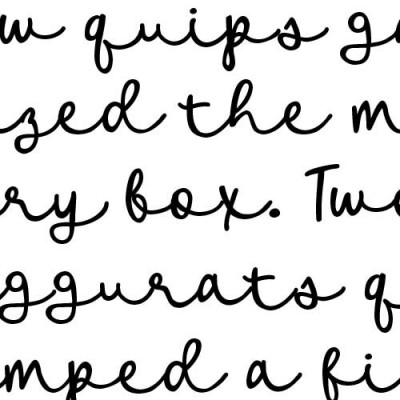 w quips ga
zed the m
ry box. Two
ggurats q
mped a fi